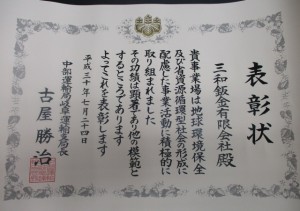 表彰状
三和鈑金有限会社殿
貴事業場は地球環境保全
及び省資源循環型社会の形成に
配慮した事業活動に積極的に
取り組まれました
その功績は顕著であり他の模範と
するところであります
よってこれを表彰します
平成三十年七月二十四日
中部運輸局岐阜運輸支局長
古屋勝治